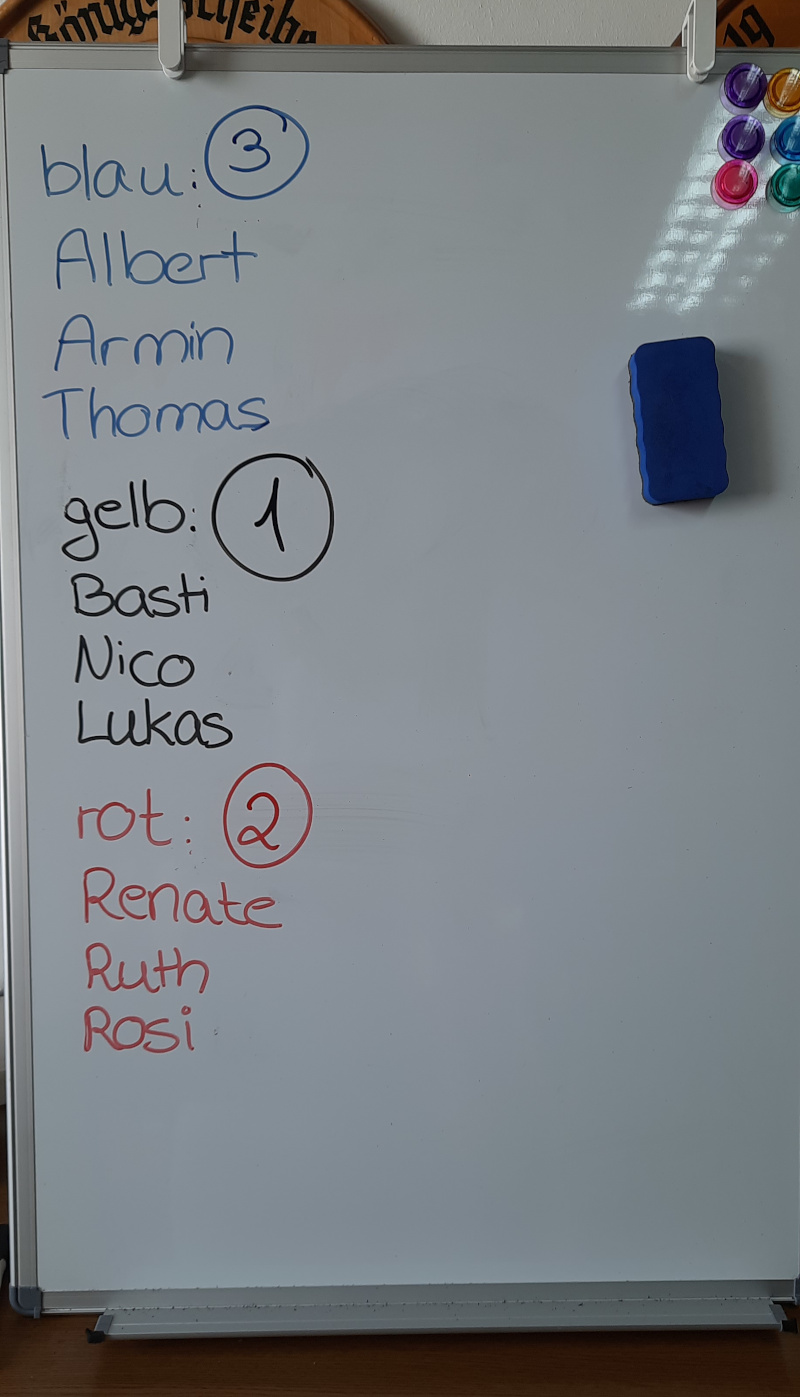 Königsscheibe
19
blau: 3
Albert
Armin
Thomas
gelb: 1
Basti
Nico
Lukas
rot: 2
Renate
Ruth
Rosi